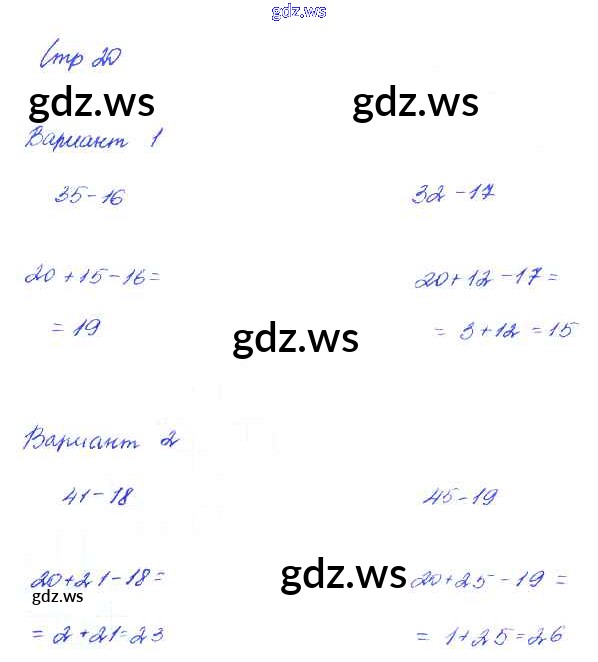 gdz.ws
Стр 20
gdz.ws gdz.ws
Вариант 1
35-16 32-17
20+15-16= 20+12-17=
= 19 = 3+12=15
gdz.ws
Вариант 2
41-18 45-19
20+21-18= gdz.ws 20+25-19=
gdz.ws
= 2+21=23 = 1+25=26